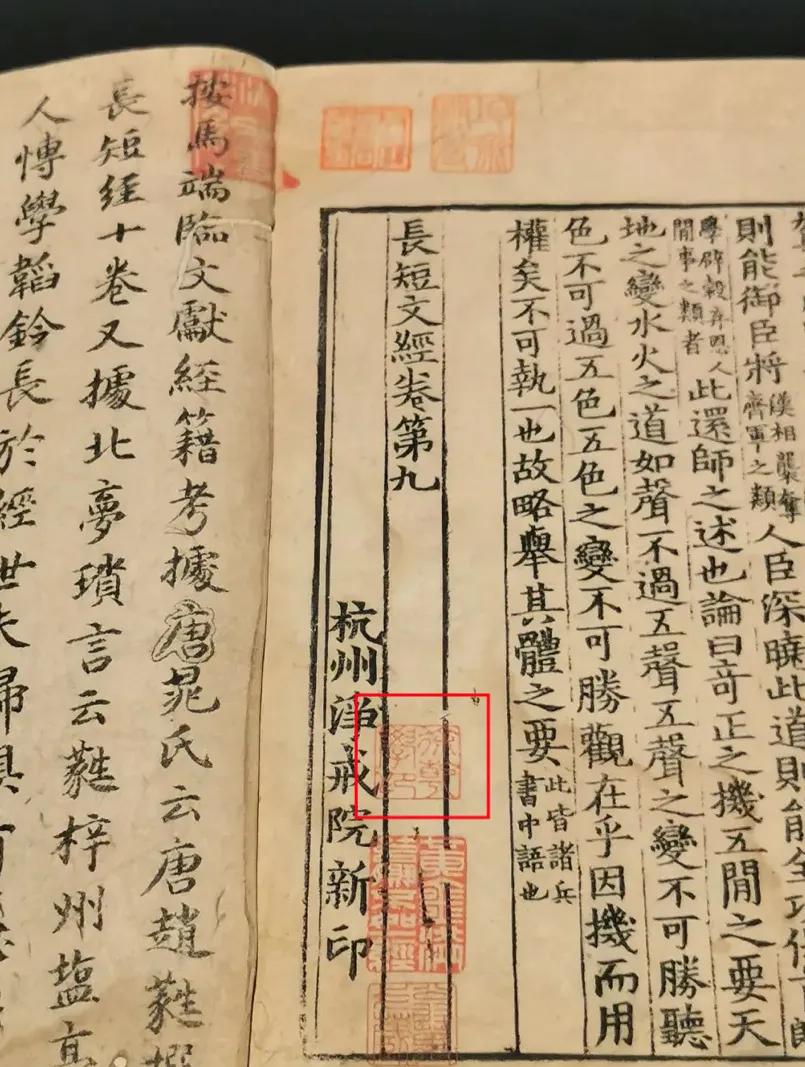 則能御臣將漢相襲奪齊軍之類人臣深曉此道則能全功保
學辟穀弃恩人閒事之類者此還師之述也論曰竒正之機五閒之要天
地之變水火之道如聲不過五聲五聲之變不可勝聽
色不可過五色五色之變不可勝觀在乎因機而用
權矣不可執一也故略舉其體之要此皆諸兵書中語也
長短文經卷第九
杭州淨戒院新印
按馬端臨文獻經籍考據唐晁氏云唐趙蕤撰
長短經十卷又據北夢瑣言云蕤梓州塩亭
人愽學韜鈐長於經世夫婦俱有